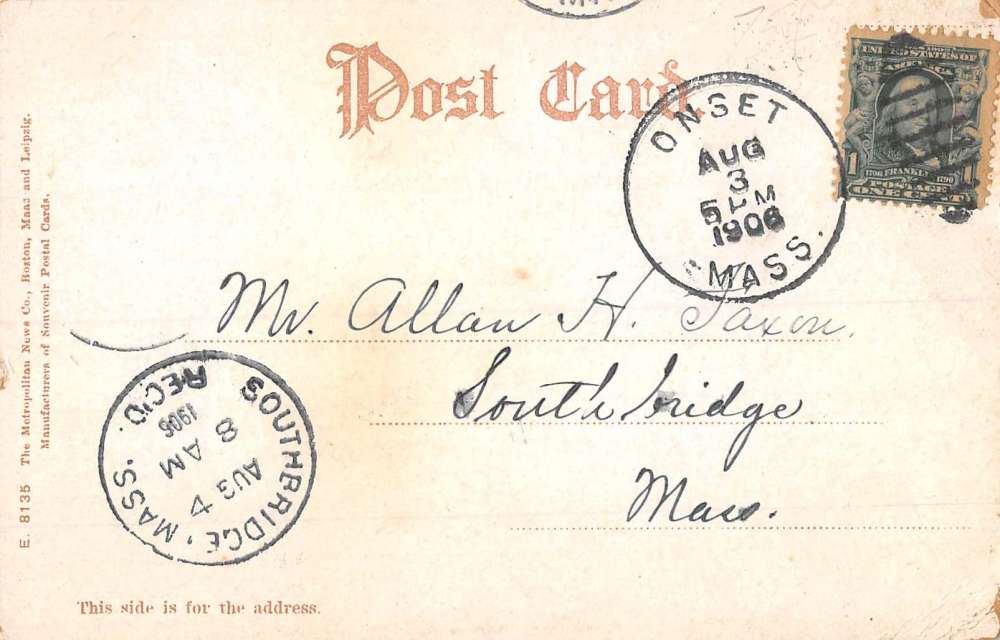 Post Card.
UNITED STATES OF
AMERICA
1 1706 FRANKLIN 1790 1
POSTAGE
ONE CENT
ONSET
AUG
3
5 PM
1906
MASS.
Mr. Allan H. Saxon,
Southbridge
Mass.
SOUTHBRIDGE, MASS.
AUG 4
8 AM
1906
REC'D.
This side is for the address.
E. 8135 The Metropolitan News Co., Boston, Mass and Leipzig.
Manufacturers of Souvenir Postal Cards.